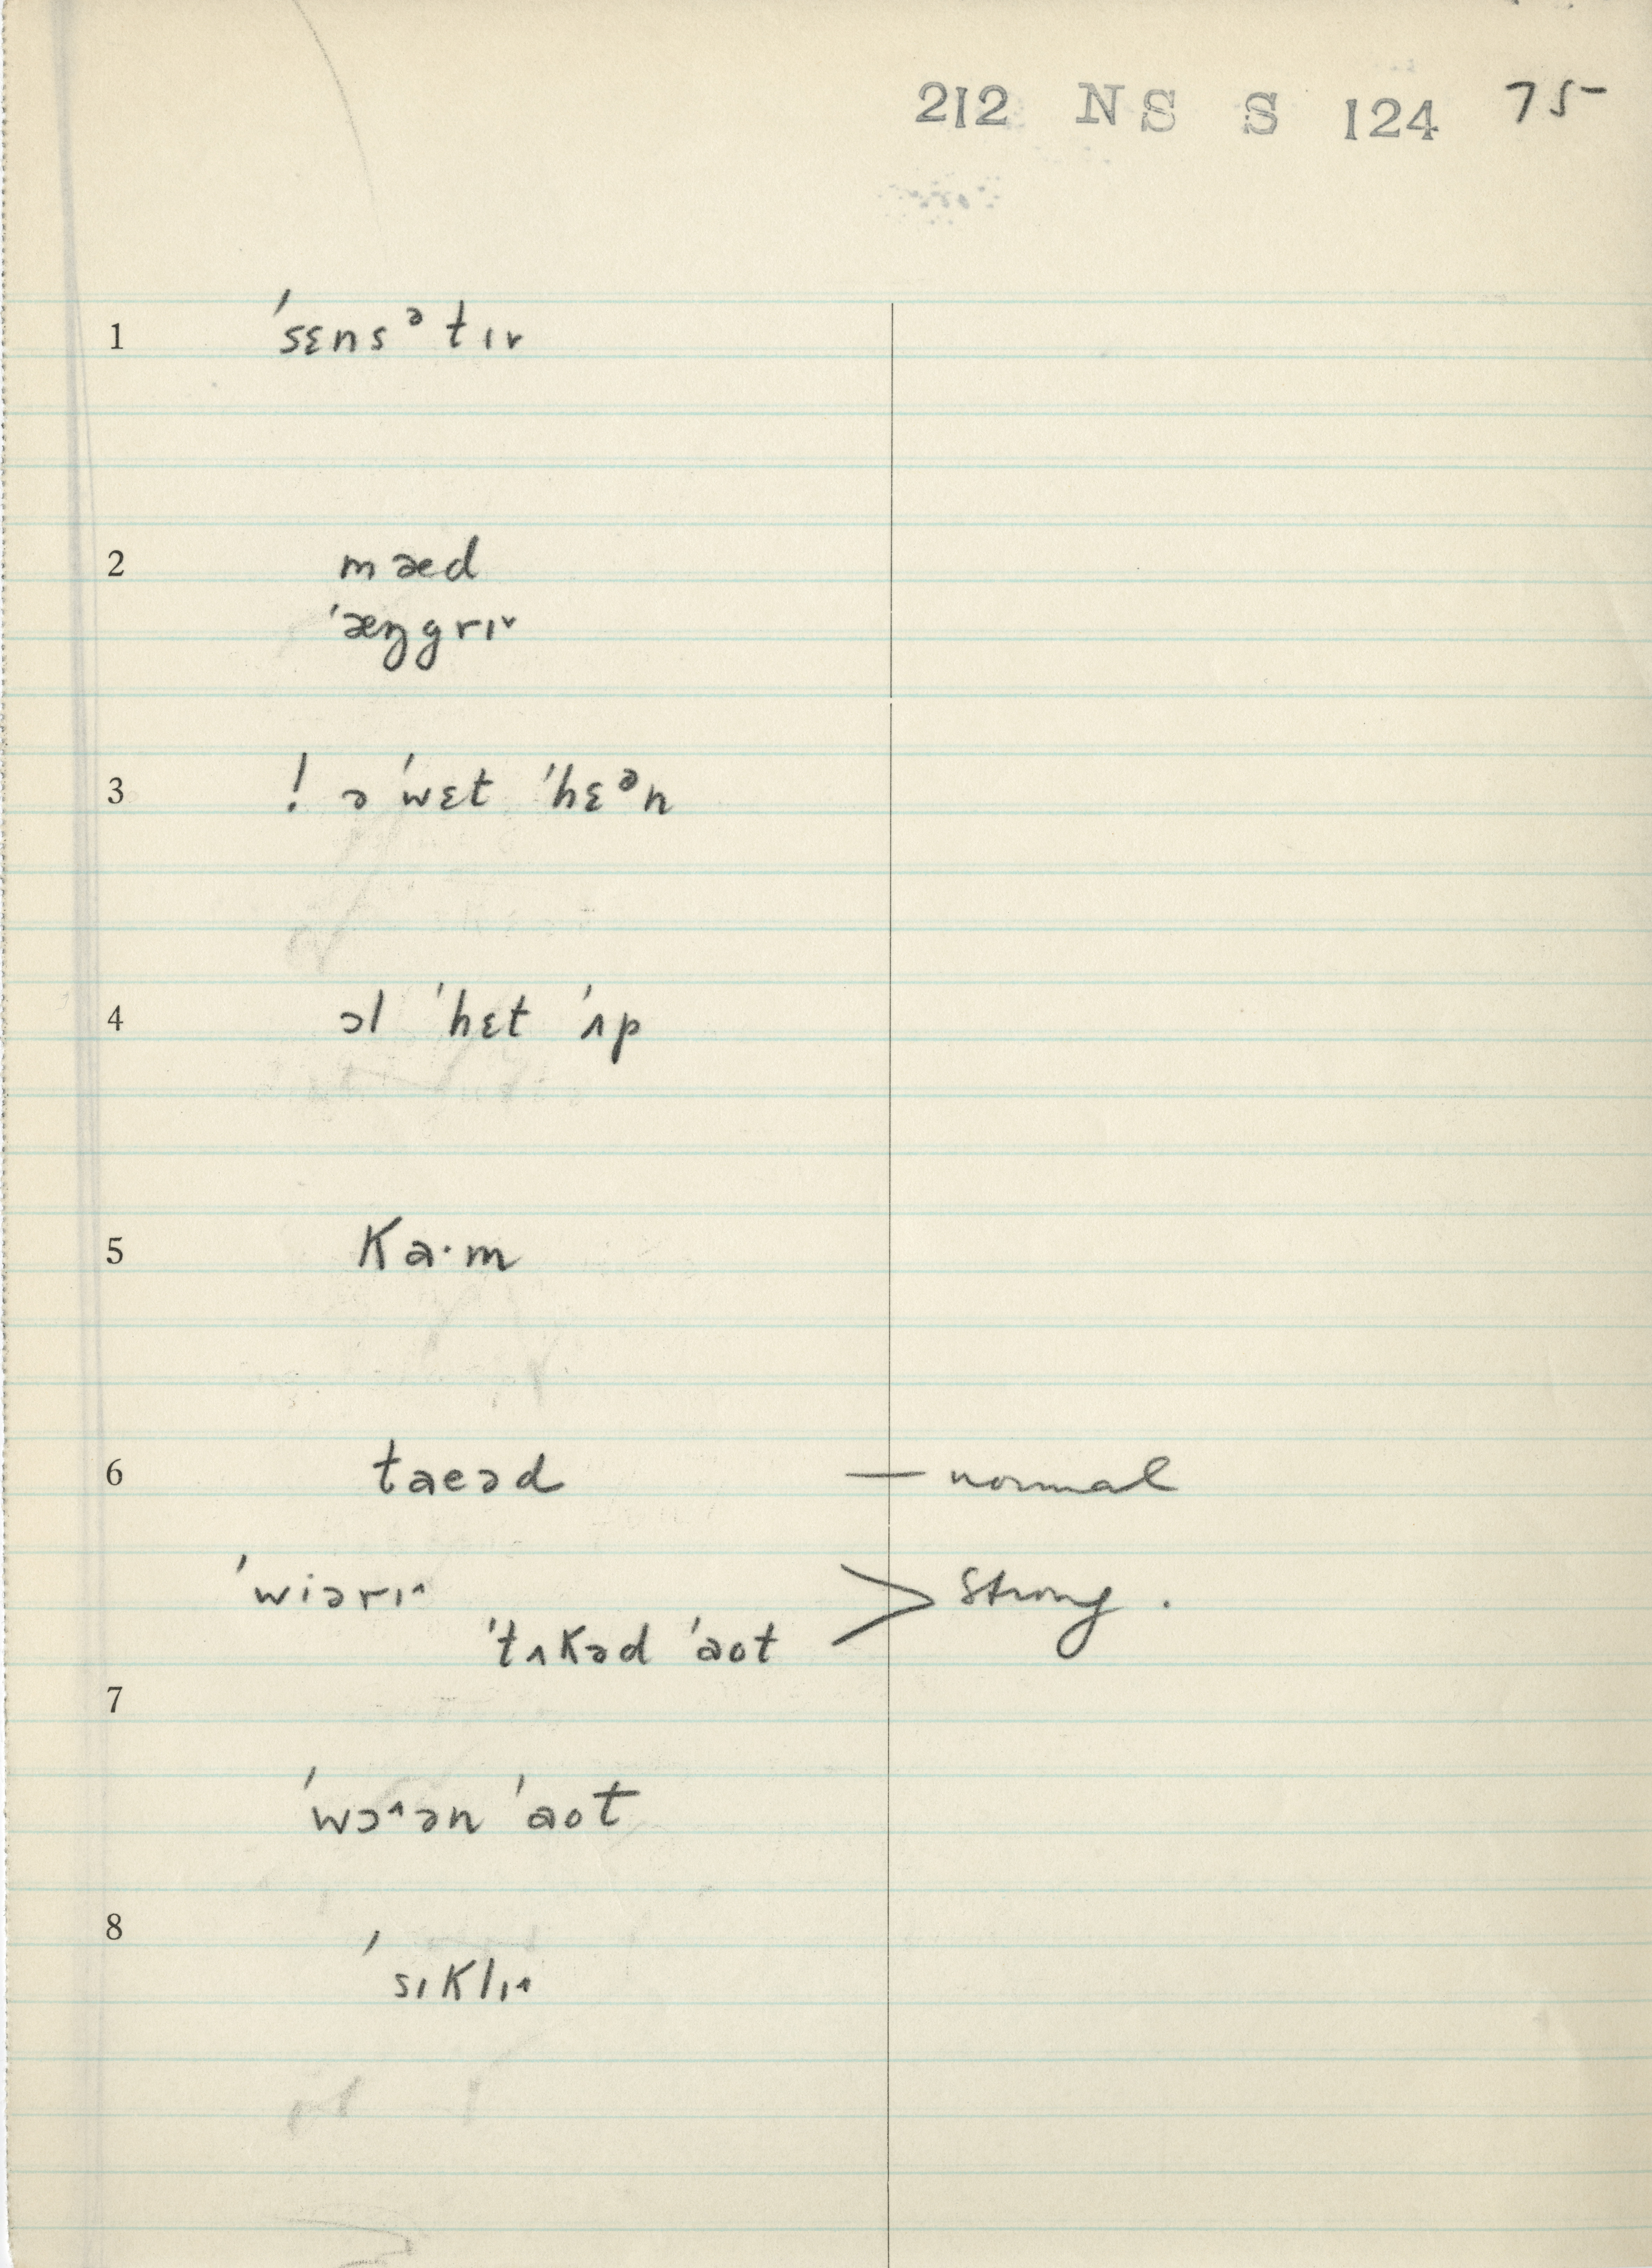 212 NS S 124 75
1 ˈsɛnsᵊtɪ˅
2 mæd
ˈæŋgrɪ˅
3 ! ə ˈwɛt ˈhɛᵊn
4 ɔl ˈhɛt ˈʌp
5 ka·m
6 taeəd — normal
ˈwiərɪ˄
ˈtʌkəd ˈaot > Strong.
7
ˈwɔ˄ən ˈaot
8
ˈsɪklɪ˄